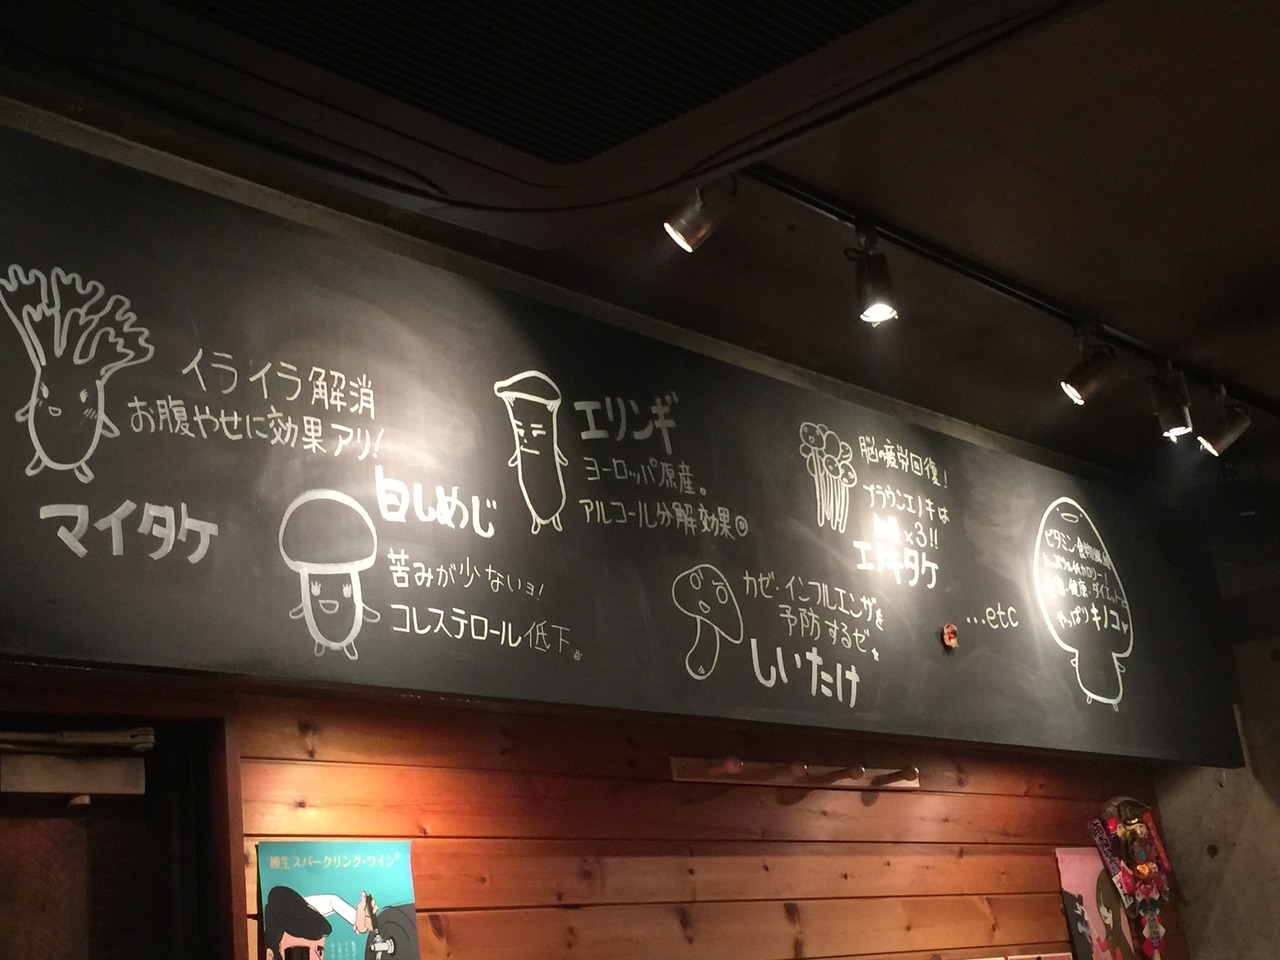 イライラ解消
お腹やせに効果アリ!
マイタケ
白しめじ
苦みが少ないョ!
コレステロール低下。
エリンギ
ヨーロッパ原産。
アルコール分解効果◎
カゼ・インフルエンザを
予防するゼ☆
しいたけ
脳の疲労回復!
ブラウンエノキは
×3!!
エノキタケ
...etc
ビタミン・食物繊維
たっぷり低カロリー!
健康・ダイエット
やっぱりキノコ♥
樽生スパークリング・ワイン